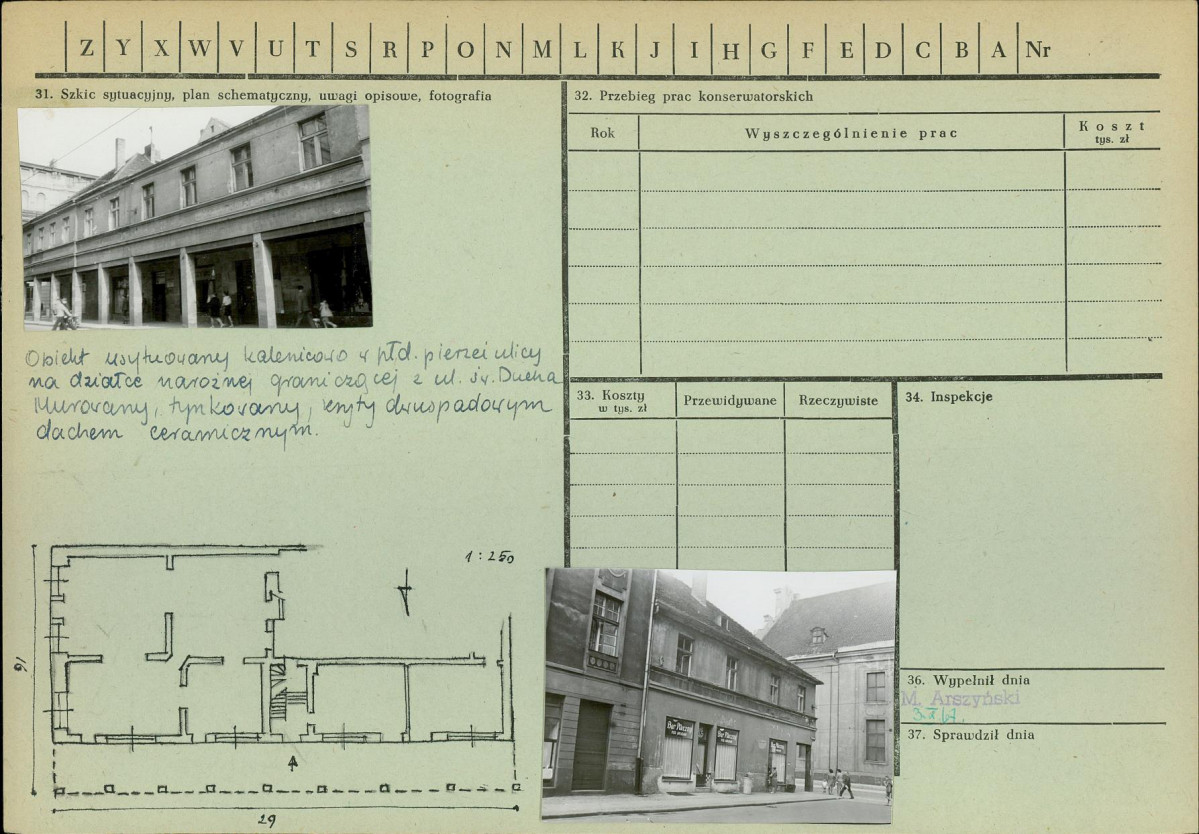 Z Y X W V U T S R P O N M L K J I H G F E D C B A Nr
31. Szkic sytuacyjny, plan schematyczny, uwagi opisowe, fotografia
Obiekt usytuowany kalenicowo w płd. pierzei ulicy
na działce narożnej graniczącej z ul. św. Ducha
Murowany, tynkowany, kryty dwuspadowym
dachem ceramicznym.
1:250
16
29
32. Przebieg prac konserwatorskich
Rok
Wyszczególnienie prac
Koszt
tys. zł
33. Koszty
w tys. zł
Przewidywane
Rzeczywiste
34. Inspekcje
Bar Mleczny
Bar Mleczny
36. Wypełnił dnia
M. Arszyński
37. Sprawdził dnia